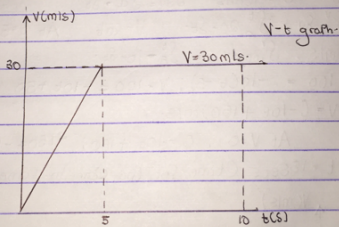 V(m/s)
V-t graph.
V=30m/s.
30
5
10
t(s)